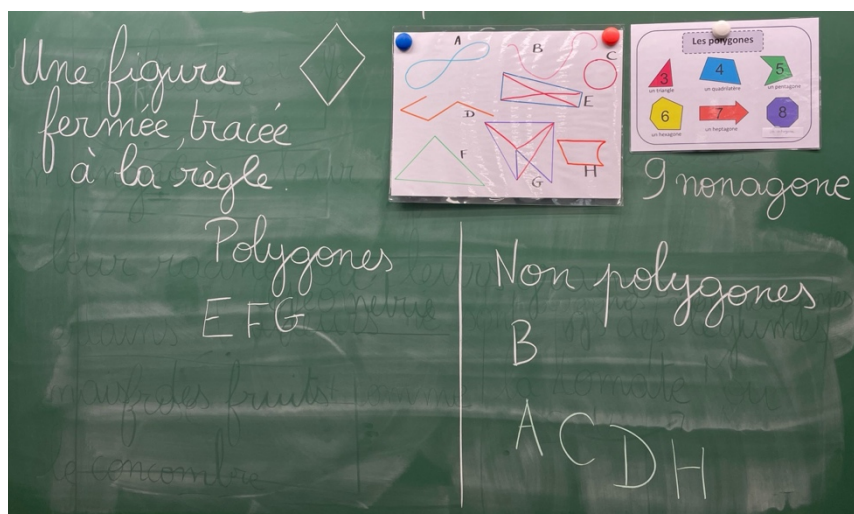 Une figure
fermée, tracée
à la règle.
A
B
C
D
E
F
G
H
Les polygones
3
un triangle
4
un quadrilatère
5
un pentagone
6
un hexagone
7
un heptagone
8
9 nonagone
Polygones
E F G
Non polygones
B
A C D H